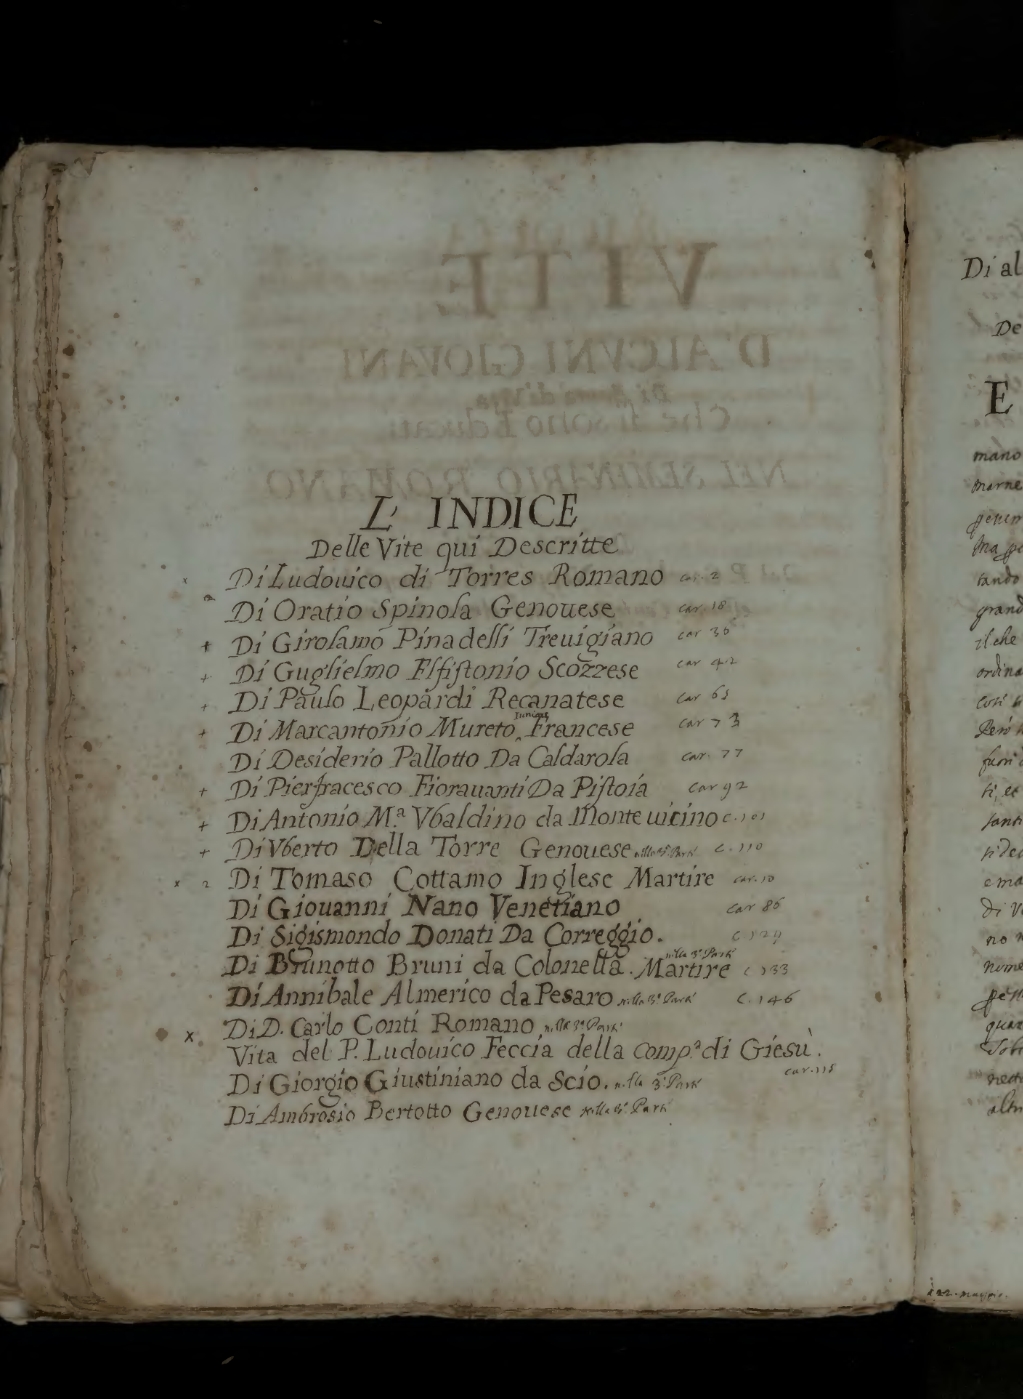 L' INDICE
Delle Vite qui Descritte
x Di Ludouico di Torres Romano car. 2
Di Oratio Spinola Genouese car. 18
+ Di Girolamo Pinadelli Treuigiano car 36
+ Di Guglielmo Elfistonio Scozzese car 42
+ Di Paulo Leopardi Recanatese car 63
+ Di Marcantonio Mureto Iuniore Francese car 73
Di Desiderio Pallotto Da Caldarola car. 77
+ Di Pierfracesco Fiorauanti Da Pistoia car 92
+ Di Antonio M.ª Vbaldino da Monte uicino c. 101
+ Di Vberto Della Torre Genouese nella 3ª Parte c. 110
x 2 Di Tomaso Cottamo Inglese Martire car. 10
Di Giouanni Nano Venetiano car 86
Di Sigismondo Donati Da Correggio. c. 129
Di Brunotto Bruni da Colonella. Martire nella 3ª Parte c 133
Di Annibale Almerico da Pesaro nella 3ª Parte c. 146
x. Di D. Carlo Conti Romano nella 3ª Parte
Vita del P. Ludouico Feccia della Comp.ª di Giesù.
car. 118
Di Giorgio Giustiniano da Scio. nella 3ª Parte
Di Ambrosio Bertotto Genouese nella 3ª Parte
Di al
De
E
mano
marne
tando
grand
il che
ordina
Però
e ma
di V
no
nome
quar
altr